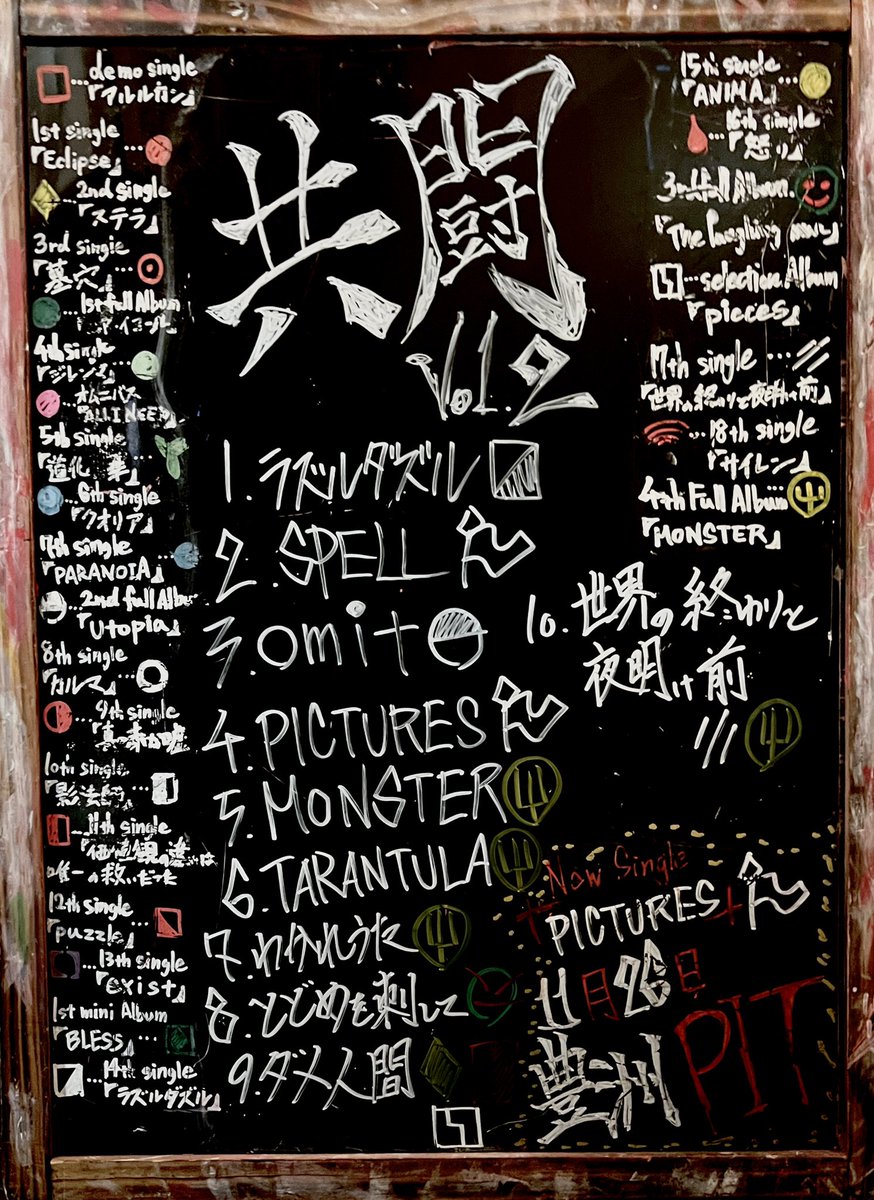 共闘
Vol.2
…demo single
『アルルカン』
1st single
『Eclipse』…
…2nd single
『ステラ』
3rd single
『墓穴』…
…1st full Album
『アイヨール』
4th single
『ジレンマ』…
…オムニバス
『ALL INEED』
5th single
『道化
…6th single
『クオリア』
7th single
『PARANOIA』…
…2nd full Album
『Utopia』
8th single
『カルマ』…
…9th single
10th single
『影法師』…
…11th single
『価値観の違いは
唯一の救いだった
12th single
『puzzle』…
…13th single
『exist』
1st mini Album
『BLESS』…
…14th single
『ラズルダズル』
1.ラズルダズル
2.SPELL
3.omit
4.PICTURES
5.MONSTER
6.TARANTULA
7.わかれうた
8.とどめを刺して
9.ダメ人間
10.世界の終わりと
夜明け前
15th single
『ANIMA』…
…16th single
『怒り』
3rd full Album…
『The laughing man』
…selection Album
『pieces』
17th single…
『世界の終わりと夜明け前』
…18th single
『サイレン』
4th Full Album…
『MONSTER』
New Single
PICTURES
11月26日
豊洲PIT